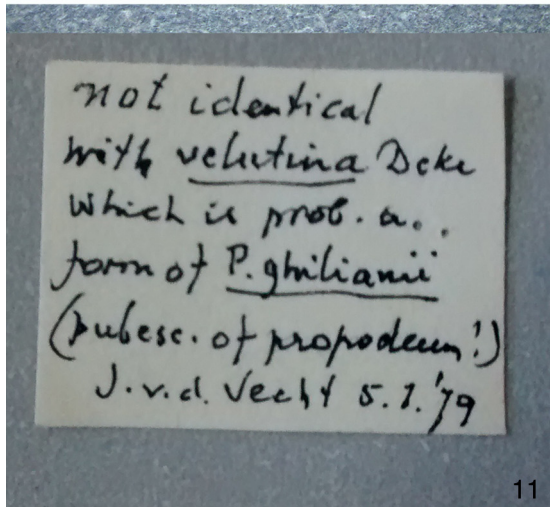 not identical
with velutina Dcke
which is prob. a..
form of P. ghilianii
(pubesc. of propodeum!)
J.v.d. Vecht 5.1.'79
11